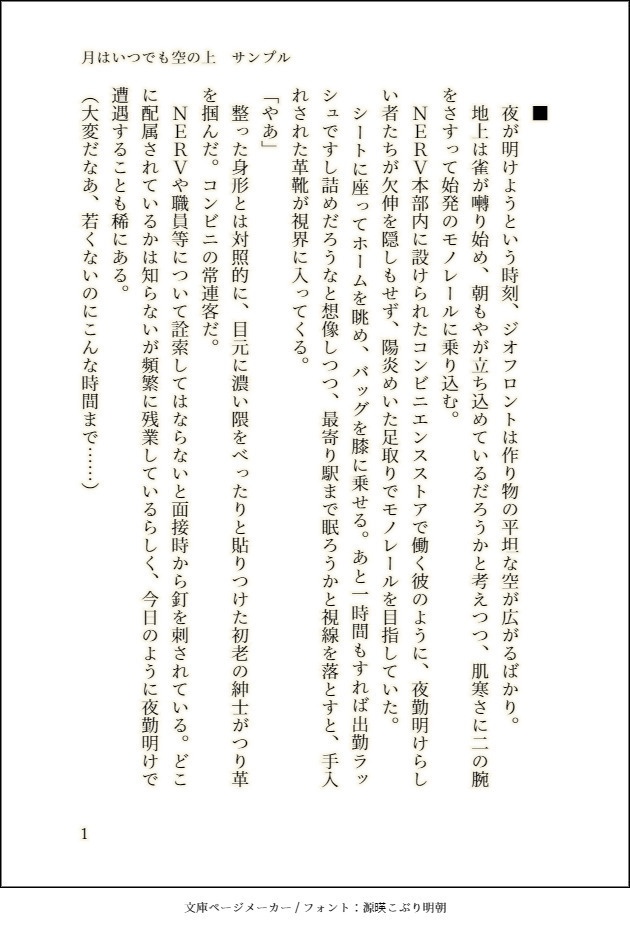 月はいつでも空の上　サンプル
■
　夜が明けようという時刻、ジオフロントは作り物の平坦な空が広がるばかり。
　地上は雀が囀り始め、朝もやが立ち込めているだろうかと考えつつ、肌寒さに二の腕
をさすって始発のモノレールに乗り込む。
　ＮＥＲＶ本部内に設けられたコンビニエンスストアで働く彼のように、夜勤明けらし
い者たちが欠伸を隠しもせず、陽炎めいた足取りでモノレールを目指していた。
　シートに座ってホームを眺め、バッグを膝に乗せる。あと一時間もすれば出勤ラッ
シュですし詰めだろうなと想像しつつ、最寄り駅まで眠ろうかと視線を落とすと、手入
れされた革靴が視界に入ってくる。
「やあ」
　整った身形とは対照的に、目元に濃い隈をべったりと貼りつけた初老の紳士がつり革
を掴んだ。コンビニの常連客だ。
　ＮＥＲＶや職員等について詮索してはならないと面接時から釘を刺されている。どこ
に配属されているかは知らないが頻繁に残業しているらしく、今日のように夜勤明けで
遭遇することも稀にある。
（大変だなあ、若くないのにこんな時間まで……）
1
文庫ページメーカー / フォント：源暎こぶり明朝